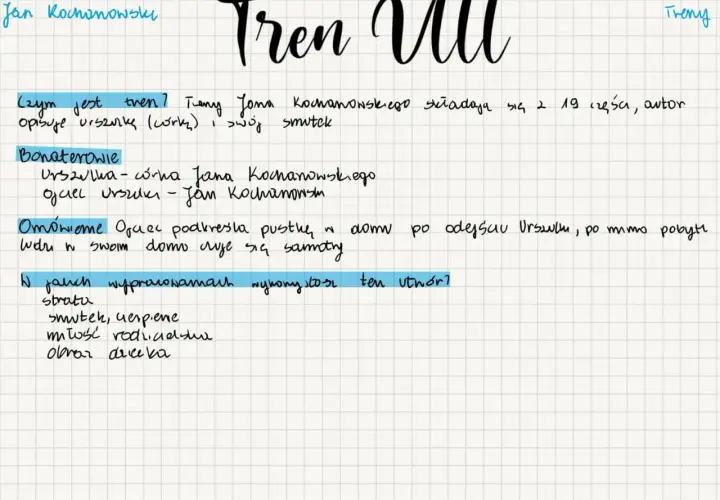 Jan Kochanowski
Tren VIII
Treny
Czym jest tren? Treny Jana Kochanowskiego składają się z 19 części, autor
opisuje urszulkę (córkę) i swój smutek
Bohaterowie
urszulka - córka Jana Kochanowskiego
ojciec urszulki - Jan Kochanowski
Omówienie Ojciec podkreśla pustkę w domu po odejściu Urszulki, po mimo pobytu
ludzi w swoim domu czuje się samotny
W jakich wypracowaniach wykorzystasz ten utwór?
strata
smutek, cierpienie
miłość rodzicielska
obraz dziecka